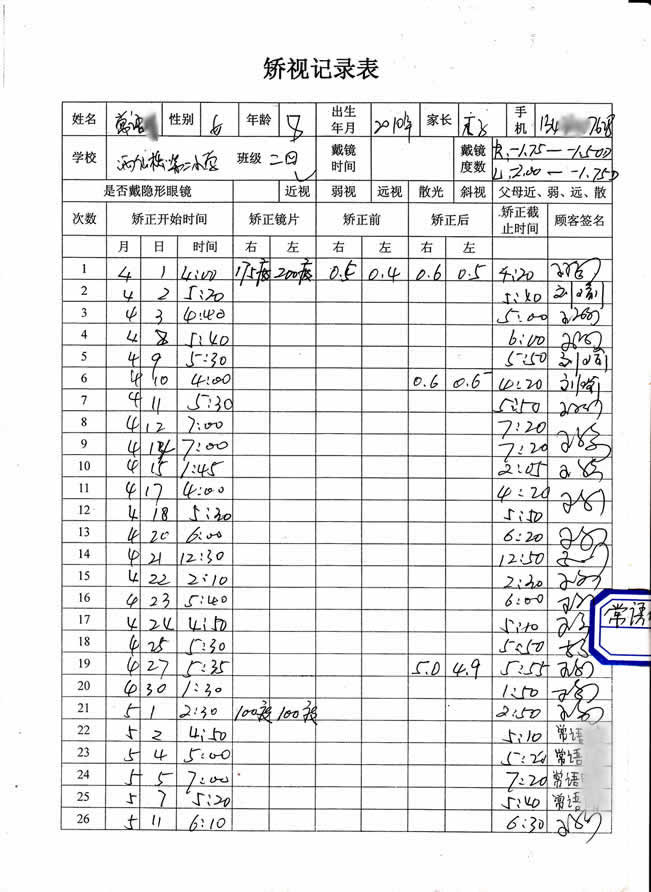 矫视记录表
姓名 性别 女 年龄 8 出生年月 2010年 家长 手机 134 7628
学校 第二小学 班级 二四 戴镜时间 戴镜度数 R:-1.75 — -1.50D
L:-2.00 — -1.75D
是否戴隐形眼镜 近视 弱视 远视 散光 斜视 父母近、弱、远、散
次数 矫正开始时间 矫正镜片 矫正前 矫正后 矫正截止时间 顾客签名
月 日 时间 右 左 右 左 右 左
1 4 1 4:00 175度 200度 0.5 0.4 0.6 0.5 4:20
2 4 2 5:20 5:40
3 4 3 4:40 5:00
4 4 8 5:40 6:00
5 4 9 5:30 5:50
6 4 10 4:00 0.6 0.6 4:20
7 4 11 5:30 5:50
8 4 12 7:00 7:20
9 4 14 7:00 7:20
10 4 15 1:45 2:05
11 4 17 4:00 4:20
12 4 18 5:30 5:50
13 4 20 6:00 6:20
14 4 21 12:30 12:50
15 4 22 2:10 2:30
16 4 23 5:40 6:00
常语
17 4 24 4:50 5:10
18 4 25 5:30 5:50
19 4 27 5:35 5.0 4.9 5:55
20 4 30 1:30 1:50
21 5 1 2:30 100度 100度 2:50
22 5 2 4:50 5:10 常语
23 5 4 5:00 5:20 常语
24 5 5 7:00 7:20 常语
25 5 7 5:20 5:40 常语
26 5 11 6:10 6:30